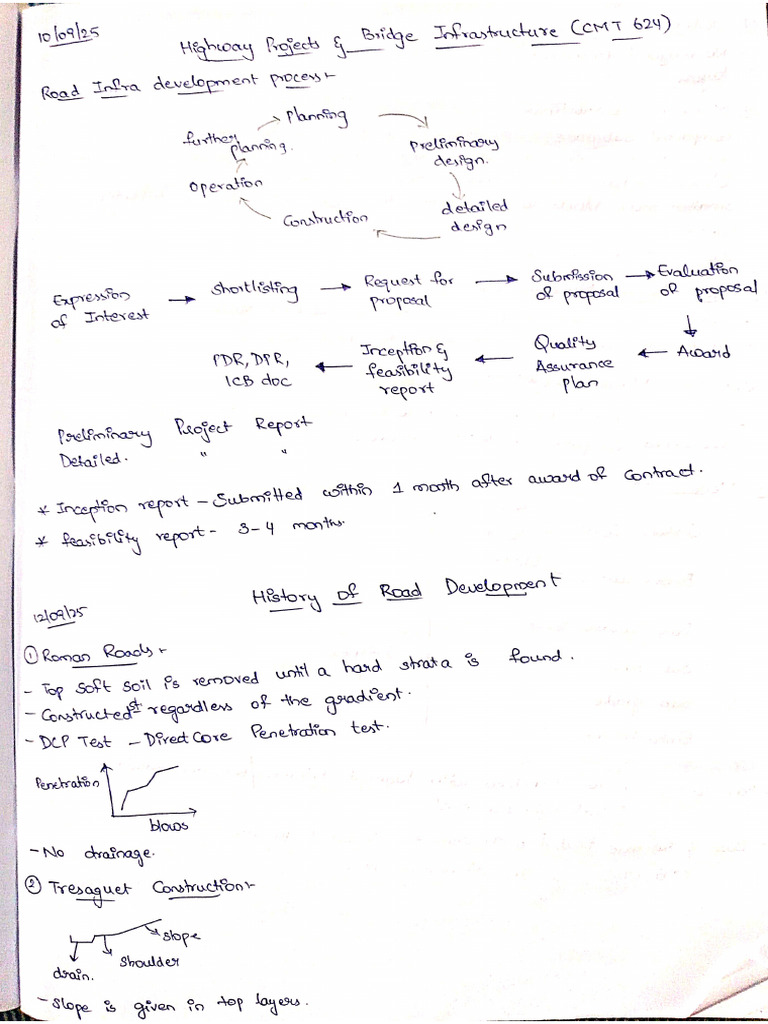 10/09/25
Highway Projects & Bridge Infrastructure (CMT 624)
Road Infra development process:-
Planning
Preliminary design.
detailed design
Construction
Operation
further planning.
Expression of Interest → Shortlisting → Request for proposal → Submission of proposal → Evaluation of proposal
↓
PDR, DPR, ICB doc ← Inception & feasibility report ← Quality Assurance plan ← Award
Preliminary Project Report
Detailed. " "
* Inception report - Submitted within 1 month after award of contract.
* feasibility report - 3-4 months.
12/09/25
History of Road Development
① Roman Roads:-
- Top soft soil is removed until a hard strata is found.
- Constructed st regardless of the gradient.
- DCP Test - Direct Core Penetration test.
Penetration
blows
- No drainage.
② Tresaguet Construction:-
slope
shoulder
drain.
- Slope is given in top layers.